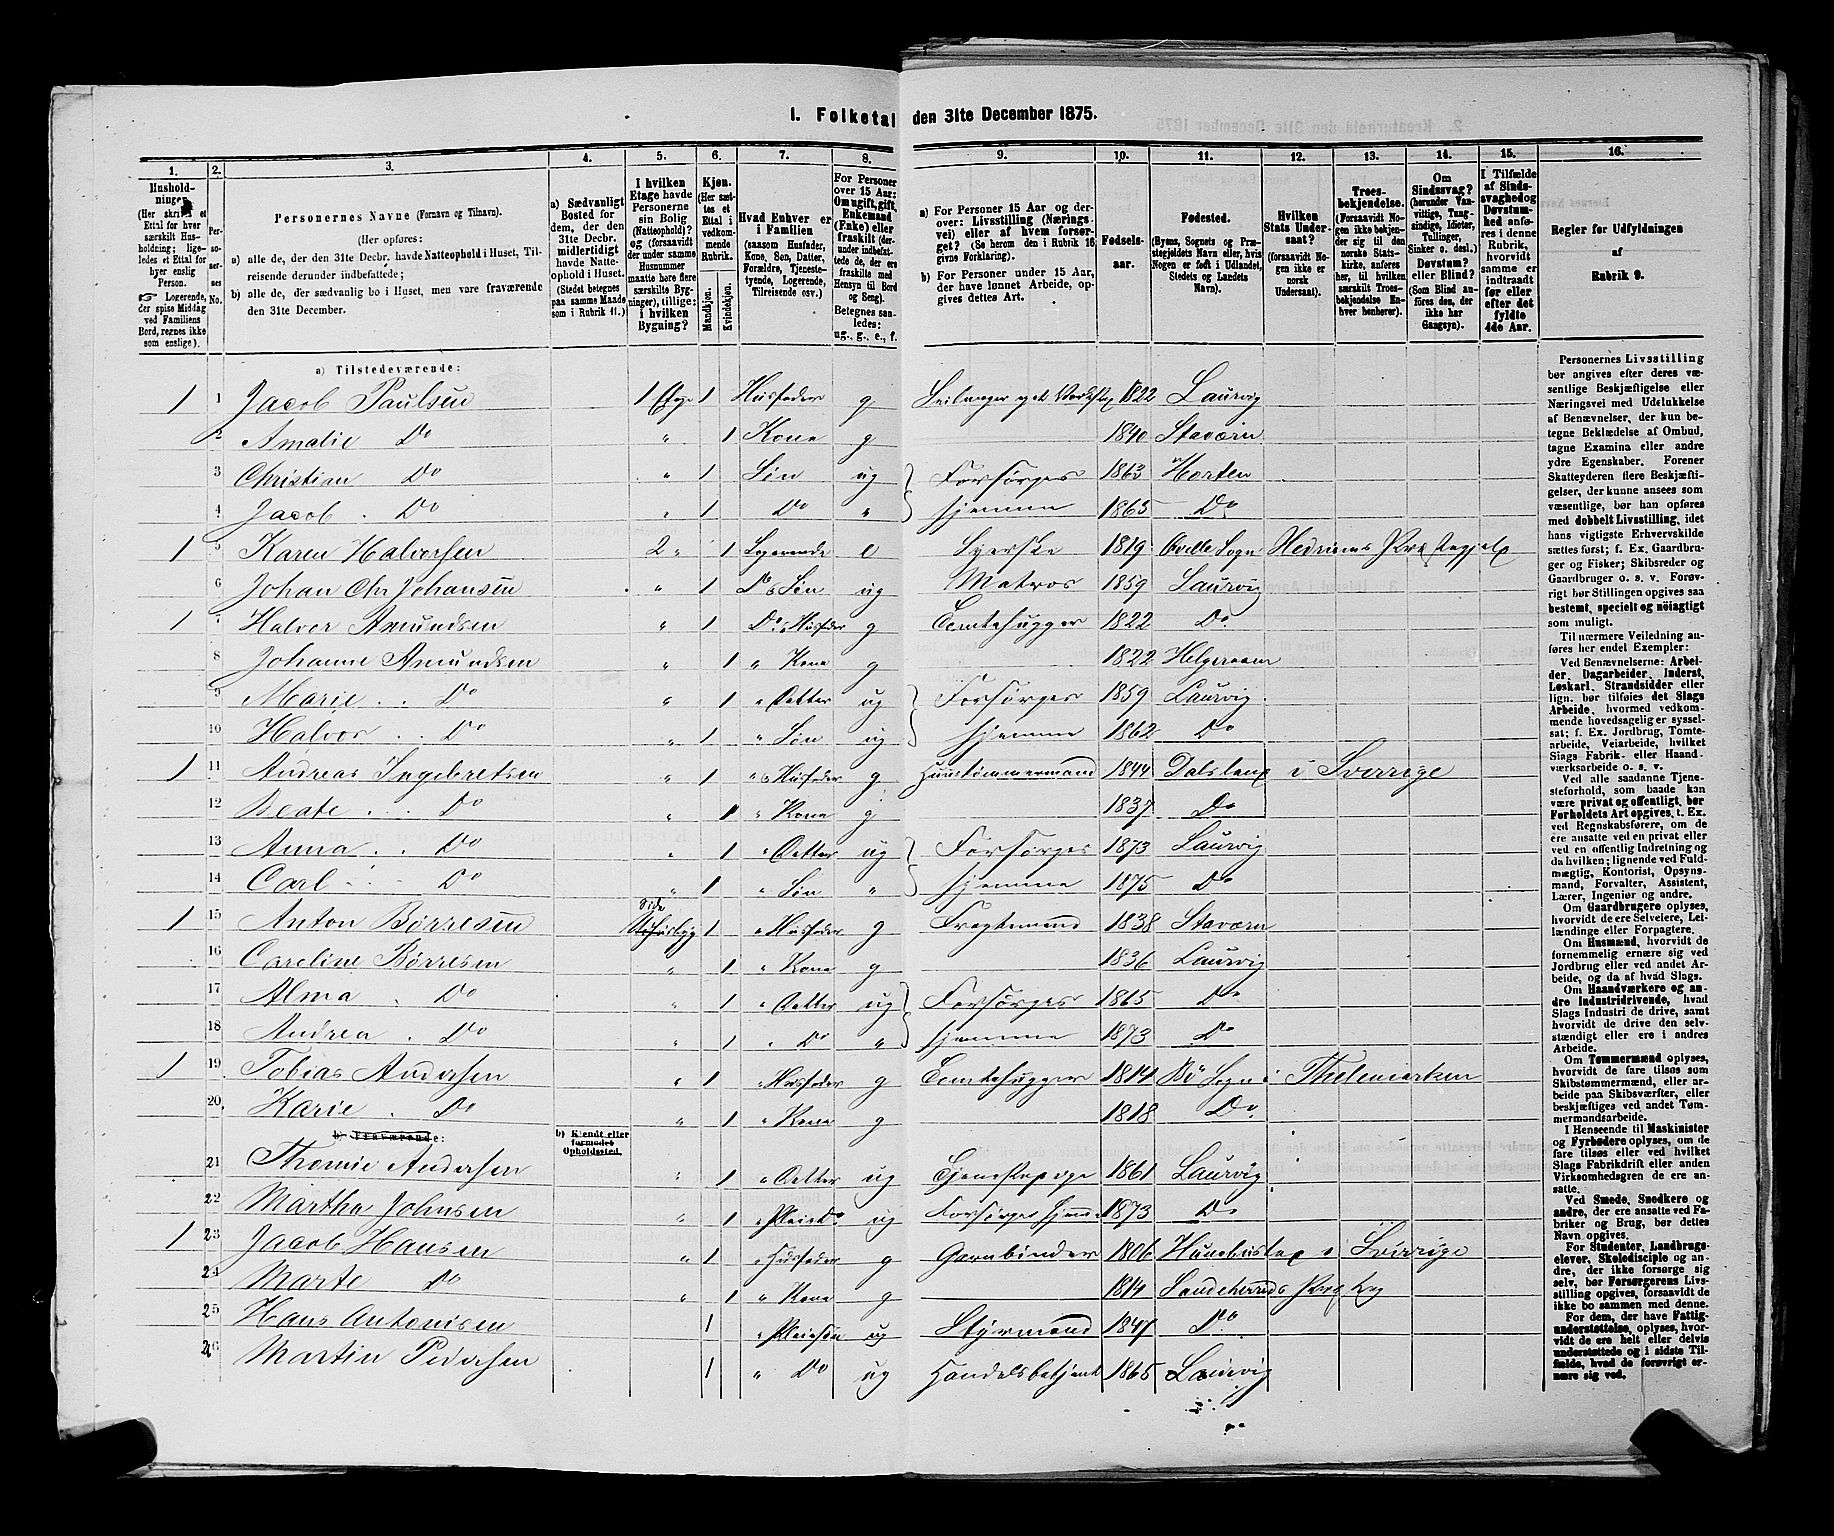 1. Folketal den 31te December 1875.
1. 2. 3. 4. 5. 6. 7. 8. 9. 10. 11. 12. 13. 14. 15. 16.
Husholdninger.
(Her skrives et Ettal for hver særskilt Husholdning; ligeledes et Ettal for hver enslig Person.
☞ Logerende, der spise Middag ved Familiens Bord, regnes ikke som enslige).
Personernes No.
Personernes Navne (Fornavn og Tilnavn).
(Her opføres:
a) alle de, der den 31te Decbr. havde Natteophold i Huset, Tilreisende derunder indbefattede;
b) alle de, der sædvanlig bo i Huset, men vare fraværende den 31te December.
a) Sædvanligt Bosted for dem, der den 31te Decbr. midlertidigt havde Natteophold i Huset. (Stedet betegnes paa samme Maade som i Rubrik 11.)
I hvilken Etage havde Personerne sin Bolig (Natteophold)? og (forsaavidt der under samme Husnummer maatte høre flere særskilte Bygninger), tillige: i hvilken Bygning?
Kjøn. (Her sættes et Ettal i vedkommende Rubrik.
Mandkjøn. Kvindekjøn.
Hvad Enhver er i Familien
(saasom Husfader, Kone, Søn, Datter, Forældre, Tjenestetyende, Logerende, Tilreisende osv.)
For Personer over 15 Aar: Om ugift, gift, Enkemand (Enke) eller fraskilt (derunder indbefattede de, der ere fraskilte med Hensyn til Bord og Seng). Betegnes saaledes: ug., g., e., f.
a) For Personer 15 Aar og derover: Livsstilling (Næringsvei) eller af hvem forsørget? (Se herom den i Rubrik 16 givne Forklaring).
b) For Personer under 15 Aar, der have lønnet Arbeide, opgives dettes Art.
Fødselsaar.
Fødested.
(Byens, Sognets og Præstegjeldets Navn, eller, hvis Nogen er født i Udlandet, Stedets og Landets Navn).
Hvilken Stats Undersaat?
(forsaavidt Nogen ikke er norsk Undersaat).
Troesbekjendelse.
(Forsaavidt Nogen ikke bekjender sig til den norske Statskirke, anføres her, til hvilken særskilt Troesbekjendelse Enhver henhører).
Om Sindssvag? (herunder Vanvittige, Tungsindige, Idioter, Tullinger, Sinker o. desl.) Døvstum? eller Blind? (Som Blind anføres den, der ikke har Gangsyn).
I Tilfælde af Sindssvaghed og Døvstumhed anføres i denne Rubrik, hvorvidt samme er indtraadt før eller efter det fyldte 4de Aar.
Regler for Udfyldningen af Rubrik 9.
a) Tilstedeværende:
1 1 Jacob Paulsen 1 Etage 1 Husfader g 1822 Laurvig
2 Amalie Do " 1 Kone g 1840 Stavern
3 Christian Do " 1 Søn ug Forsørges 1863 Horten
4 Jacob . Do " 1 Do " hjemme 1865 Do
1 5 Karen Halvorsen 2 " 1 Logerende e Syerske 1819 Sogn Præstegjeld
6 Johan Chr Johansen " 1 Do s Søn ug Matros 1859 Laurvig
1 7 Halvor Amundsen " 1 Do s Husfader g Tomtehugger 1822 Do
8 Johanne Amundsen " 1 " Kone g 1822 Helgeroaen
9 Marie . . Do " 1 " Datter ug Forsørges 1859 Laurvig
10 Halvor . . Do " 1 " Søn ug hjemme 1862 Do
1 11 Andreas Ingebretsen " 1 " s Husfader g Huustømmermand 1844 Dalsland i Sverrige
12 Beate . . . Do " 1 " Kone g 1837 Do
13 Anna . . Do " 1 " Datter ug Forsørges 1873 Laurvig
14 Carl . . . Do " 1 " Søn " hjemme 1875 Do
1 15 Anton Børresen Side 1 " Husfader g Fragtemand 1838 Stavern
16 Caroline Børresen " 1 " Kone g 1836 Laurvig
17 Alma . Do " 1 " Datter ug Forsørges 1865 Do
18 Andrea . Do " 1 " Do " hjemme 1873 Do
1 19 Tobias Andersen " 1 " Husfader g Tomtehugger 1814 Bø Sogn i Thelemarken
20 Karie . Do " 1 " Kone g 1818 Do
b) Fraværende: b) Kjendt eller formodet Opholdssted.
21 Thomie Andersen " 1 " Datter ug Tjenestepige 1861 Laurvig
22 Martha Johnsen " 1 " Pleied. ug Forsørges hjemme 1873 Do
1 23 Jacob Hansen " 1 " Husfader g Garnbinder 1806 i Sverrige
24 Marte Do " 1 " Kone g 1814 Sandeherreds
25 Hans Antonisen 1 " Pleiesøn ug Styrmand 1847 Do
26 Martin Pedersen 1 " Do ug Handelsbetjent 1865 Laurvig
Personernes Livsstilling bør angives efter deres væsentlige Beskjæftigelse eller Næringsvei med Udelukkelse af Benævnelser, der kun betegne Beklædelse af Ombud, tagne Examina eller andre ydre Egenskaber. Forener Skatteyderen flere Beskjæftigelser, der kunne ansees som væsentlige, bør han opføres med dobbelt Livsstilling, idet hans vigtigste Erhvervskilde sættes først; f. Ex. Gaardbruger og Fisker; Skibsreder og Gaardbruger o. s. v. Forøvrigt bør Stillingen opgives saa bestemt, specielt og nøiagtigt som muligt.
Til nærmere Veiledning anføres her endel Exempler:
Ved Benævnelserne: Arbeider, Dagarbeider, Inderst, Løskarl, Strandsidder eller lign. bør tilføies det Slags Arbeide, hvormed vedkommende hovedsagelig er sysselsat; f. Ex. Jordbrug, Tomtearbeide, Veiarbeide, hvilket Slags Fabrik- eller Haandværksarbeide o. s. v.
Ved alle saadanne Tjenesteforhold, som baade kan være privat og offentligt, bør Forholdets Art opgives, t. Ex. ved Regnskabsførere, om de ere ansatte ved en privat eller ved en offentlig Indretning og da hvilken; lignende ved Fuldmægtig, Kontorist, Opsynsmand, Forvalter, Assistent, Lærer, Ingeniør og andre.
Om Gaardbrugere oplyses, hvorvidt de ere Selveiere, Leilændinge eller Forpagtere.
Om Husmænd, hvorvidt de fornemmelig ernære sig ved Jordbrug eller ved andet Arbeide, og da af hvad Slags.
Om Haandværkere og andre Industridrivende, hvad Slags Industri de drive, samt hvorvidt de drive den selvstændigt eller ere i andres Arbeide.
Om Tømmermænd oplyses, hvorvidt de fare tilsøs som Skibstømmermænd, eller arbeide paa Skibsværfter, eller beskjæftiges ved andet Tømmermandsarbeide.
I Henseende til Maskinister og Fyrbødere oplyses, om de fare tilsøs eller ved hvilket Slags Fabrikdrift eller anden Virksomhedsgren de ere ansatte.
Ved Smede, Snedkere og andre, der ere ansatte ved Fabriker og Brug, bør dettes Navn opgives.
For Studenter, Landbrugselever, Skoledisciple og andre, der ikke forsørge sig selv, bør Forsørgerens Livsstilling opgives, forsaavidt de ikke bo sammen med denne.
For dem, der have Fattigunderstøttelse, oplyses, hvorvidt de ere helt eller delvis understøttede og i sidste Tilfælde, hvad de forøvrigt ernære sig ved.